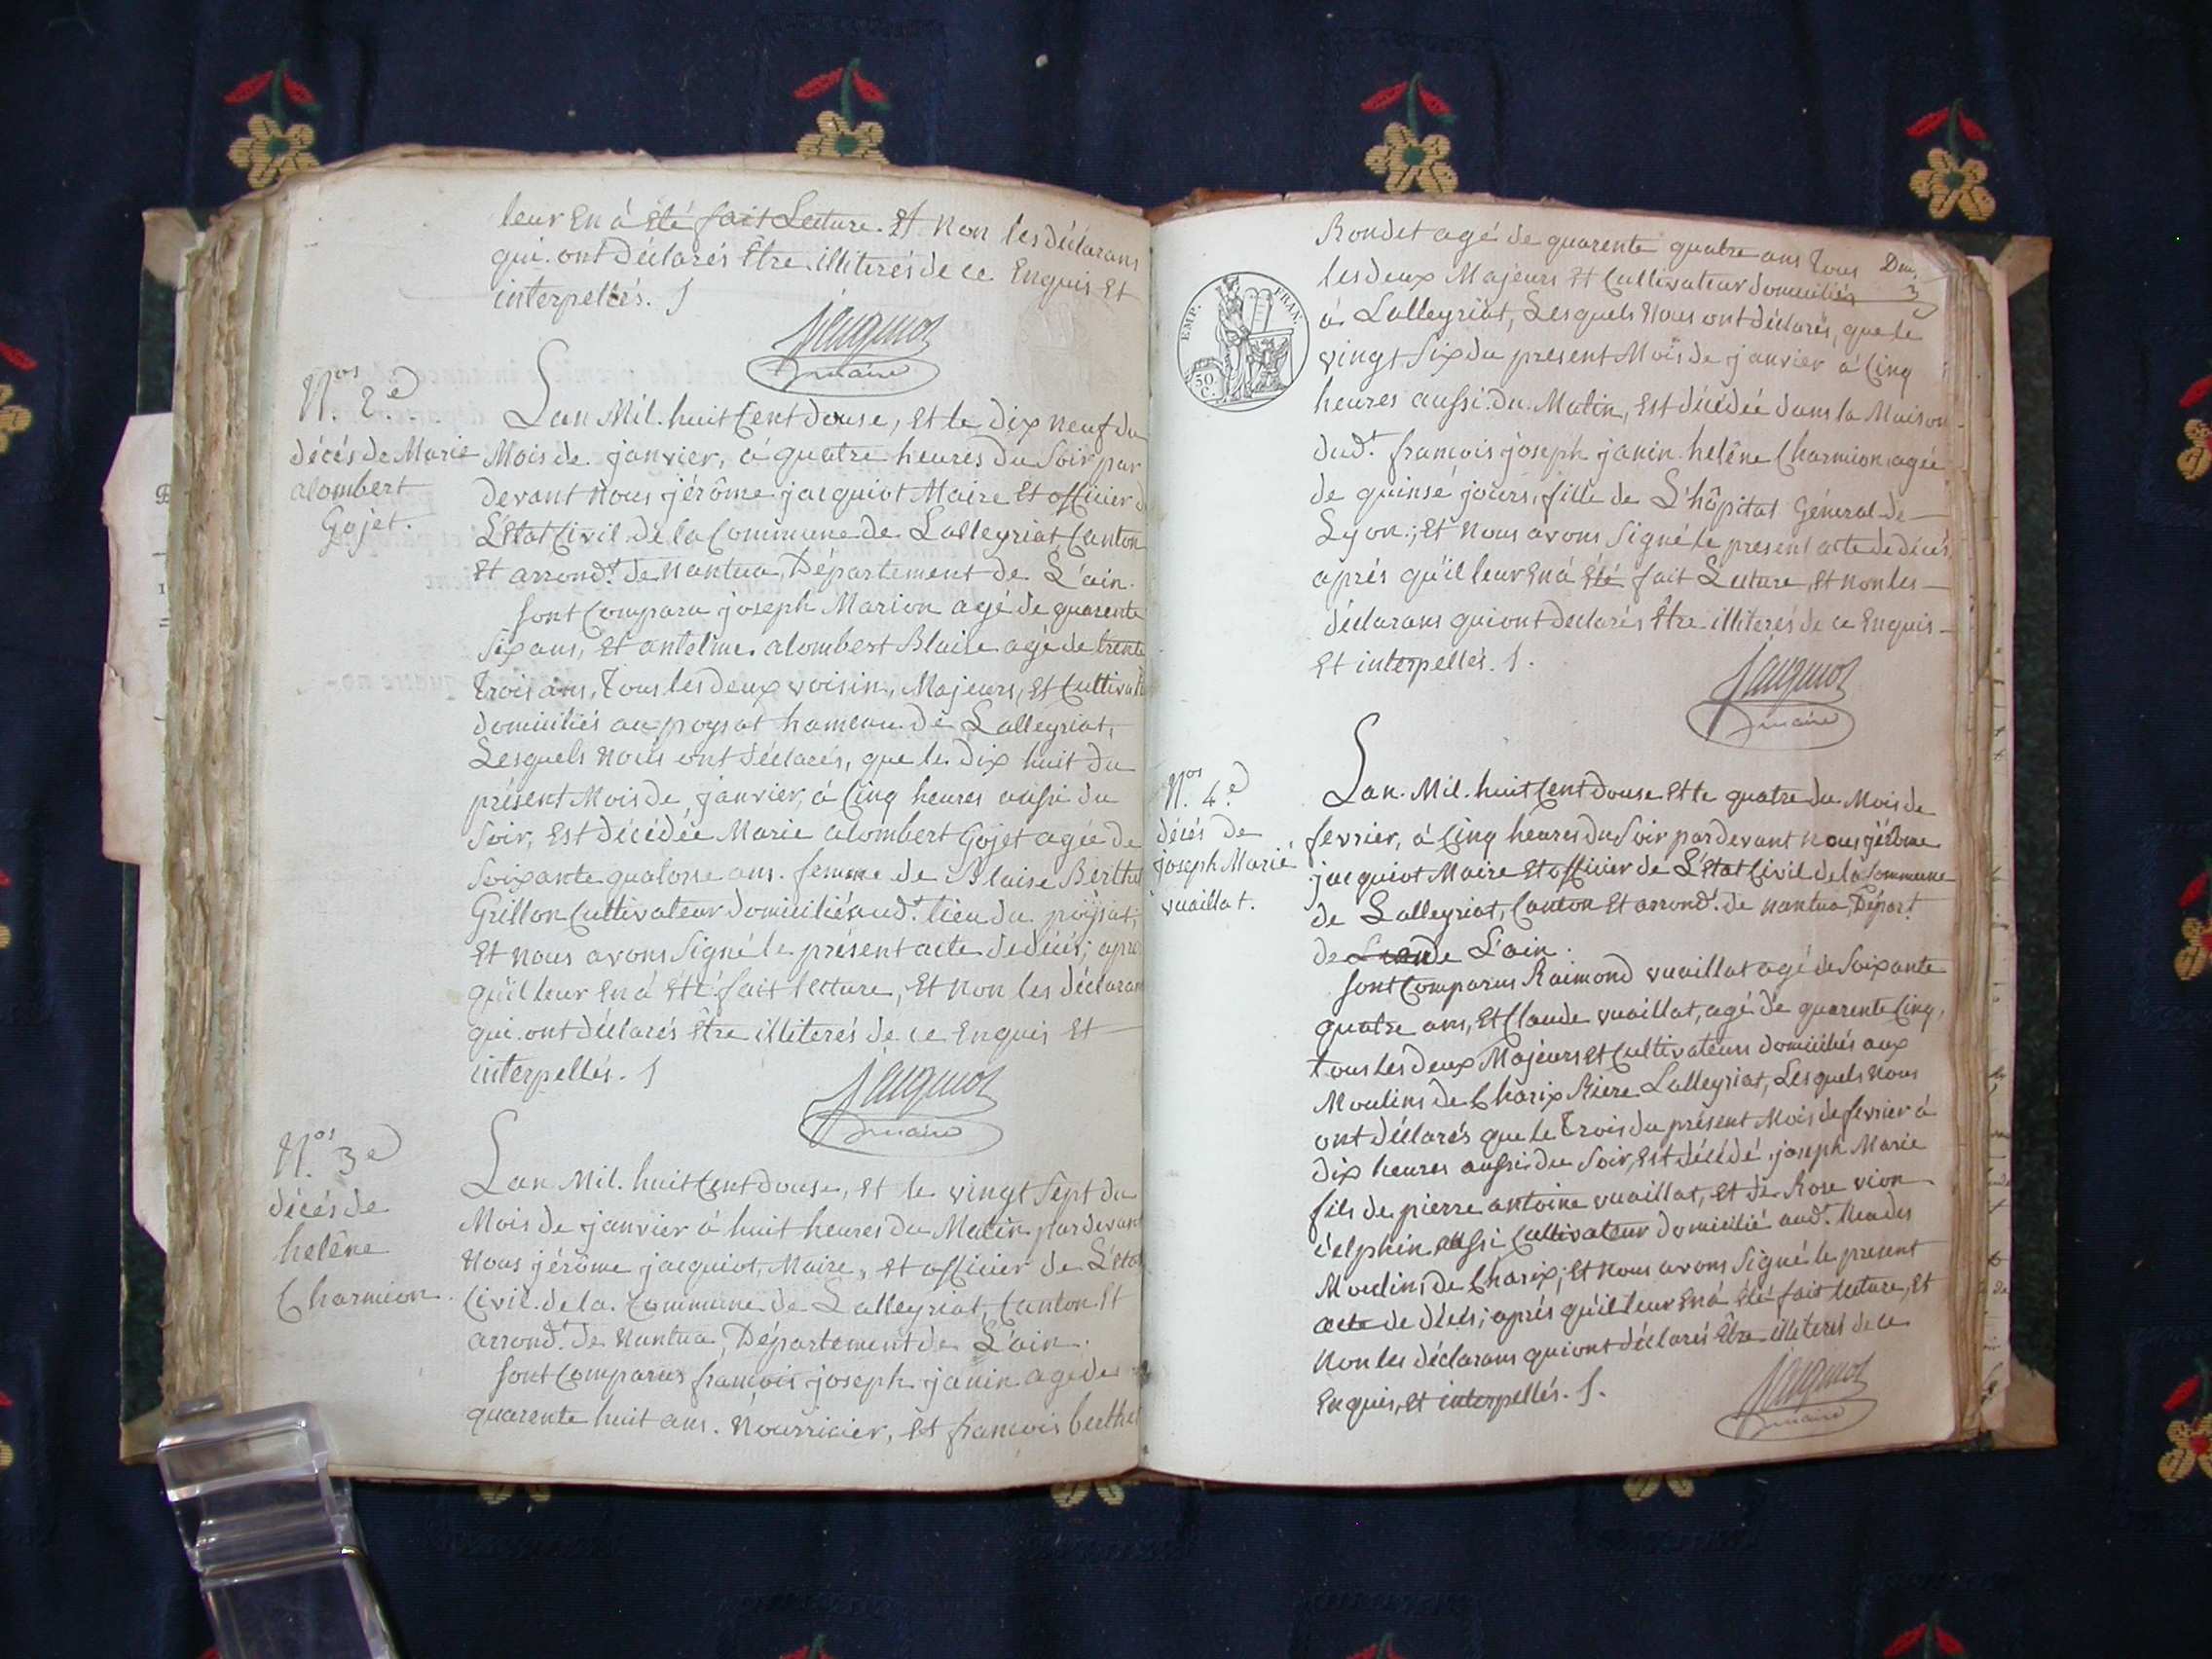 leur En á Eté fait Lecture. Et Non les déclarans
qui ont déclarés Être illiterés de ce Enquis Et
interpellés. /.
Jacquiot
maire
Nos. 2e
décés de Marie
alombert
Gojet.
Lan Mil. huit Cent douse, Et le dix neuf du
Mois de janvier, á quatre heures du Soir par
devant nous jérôme jacquiot Maire Et officier de
L'Etat Civil de la Commune de Lalleyriat Canton
Et arrondt. de Nantua, Département de L'ain.
Sont Comparu joseph Marion agé de quarente
Six ans, Et antelme alombert Blaise agé de trente
Trois ans, Tous les deux voisin, Majeurs, Et Cultivat
domiciliés au poysat hameau de Lalleyriat,
Lesquels Nous ont déclarés, que le dix huit du
présent Mois de janvier, á Cinq heures aussi du
Soir, Est décédée Marie alombert Gojet agée de
Soixante quatorse ans. femme de Blaise Berthet
Grillon Cultivateur domicilié aud.t lieu du poysat;
Et nous avons Signé le présent acte de décés; aprés
qu'il leur En á Eté fait lecture, Et Non les déclarans
qui ont déclarés Être illiterés de ce Enquis Et
interpellés. /
Jacquiot
maire
Nos. 3e
décés de
helêne
Charmion.
Lan Mil. huit Cent douse, Et le vingt Sept du
Mois de janvier á huit heures du Matin pardevant
Nous jérôme jacquiot, Maire, Et officier de L'Etat
Civil de la Commune de Lalleyriat, Canton Et
arrondt. de Nantua, Département de L'ain.
Sont Comparus francois joseph janin agé de
quarente huit ans. Nourricier, Et francois berthet
Rondet agé de quarente quatre ans Tous
3
les deux Majeurs Et Cultivateur domiciliés
á Lalleyriat, Lesquels Nous ont déclarés, que le
EMP. FRAN.
50 C.
vingt Six du present Mois de janvier á Cinq
heures aussi du Matin, Est décédée dans la Maison
dud.t francois joseph janin helêne Charmion agée
de quinse jours, fille de L'hôpital Général de
Lyon; Et Nous avons Signé le present acte de décés
aprés qu'il leur En á Eté fait Lecture, Et non les
déclarans qui ont declarés Être illiterés de ce Enquis
Et interpellés. /.
Jacquiot
maire
Nos. 4e
décés de
joseph Marie
vuaillat.
Lan. Mil. huit Cent douse Et le quatre du Mois de
fevrier, á Cinq heures du Soir pardevant nous jérôme
jacquiot Maire Et officier de L'Etat Civil de la Commune
de Lalleyriat, Canton Et arrondt. de nantua, Départ.t
de L'ain.
Sont Comparus Raimond vuaillat agé de Soixante
quatre ans, Et Claude vuaillat, agé de quarente Cinq,
tous les deux Majeurs Et Cultivateurs domiciliés aux
Moulins de Charix Riere Lalleyriat, Lesquels Nous
ont déclarés que le Trois du présent Mois de fevrier á
dix heures aussi du Soir, Est décédé joseph Marie
fils de pierre antoine vuaillat, Et de Rose vion
delphin aussi Cultivateur domicilié aud.t des
Moulins de Charix; Et Nous avons Signé le present
acte de décés; aprés qu'il leur En á Eté fait lecture, Et
Non les déclarans qui ont déclarés Être illiterés de ce
Enquis, Et interpellés. /.
Jacquiot
maire